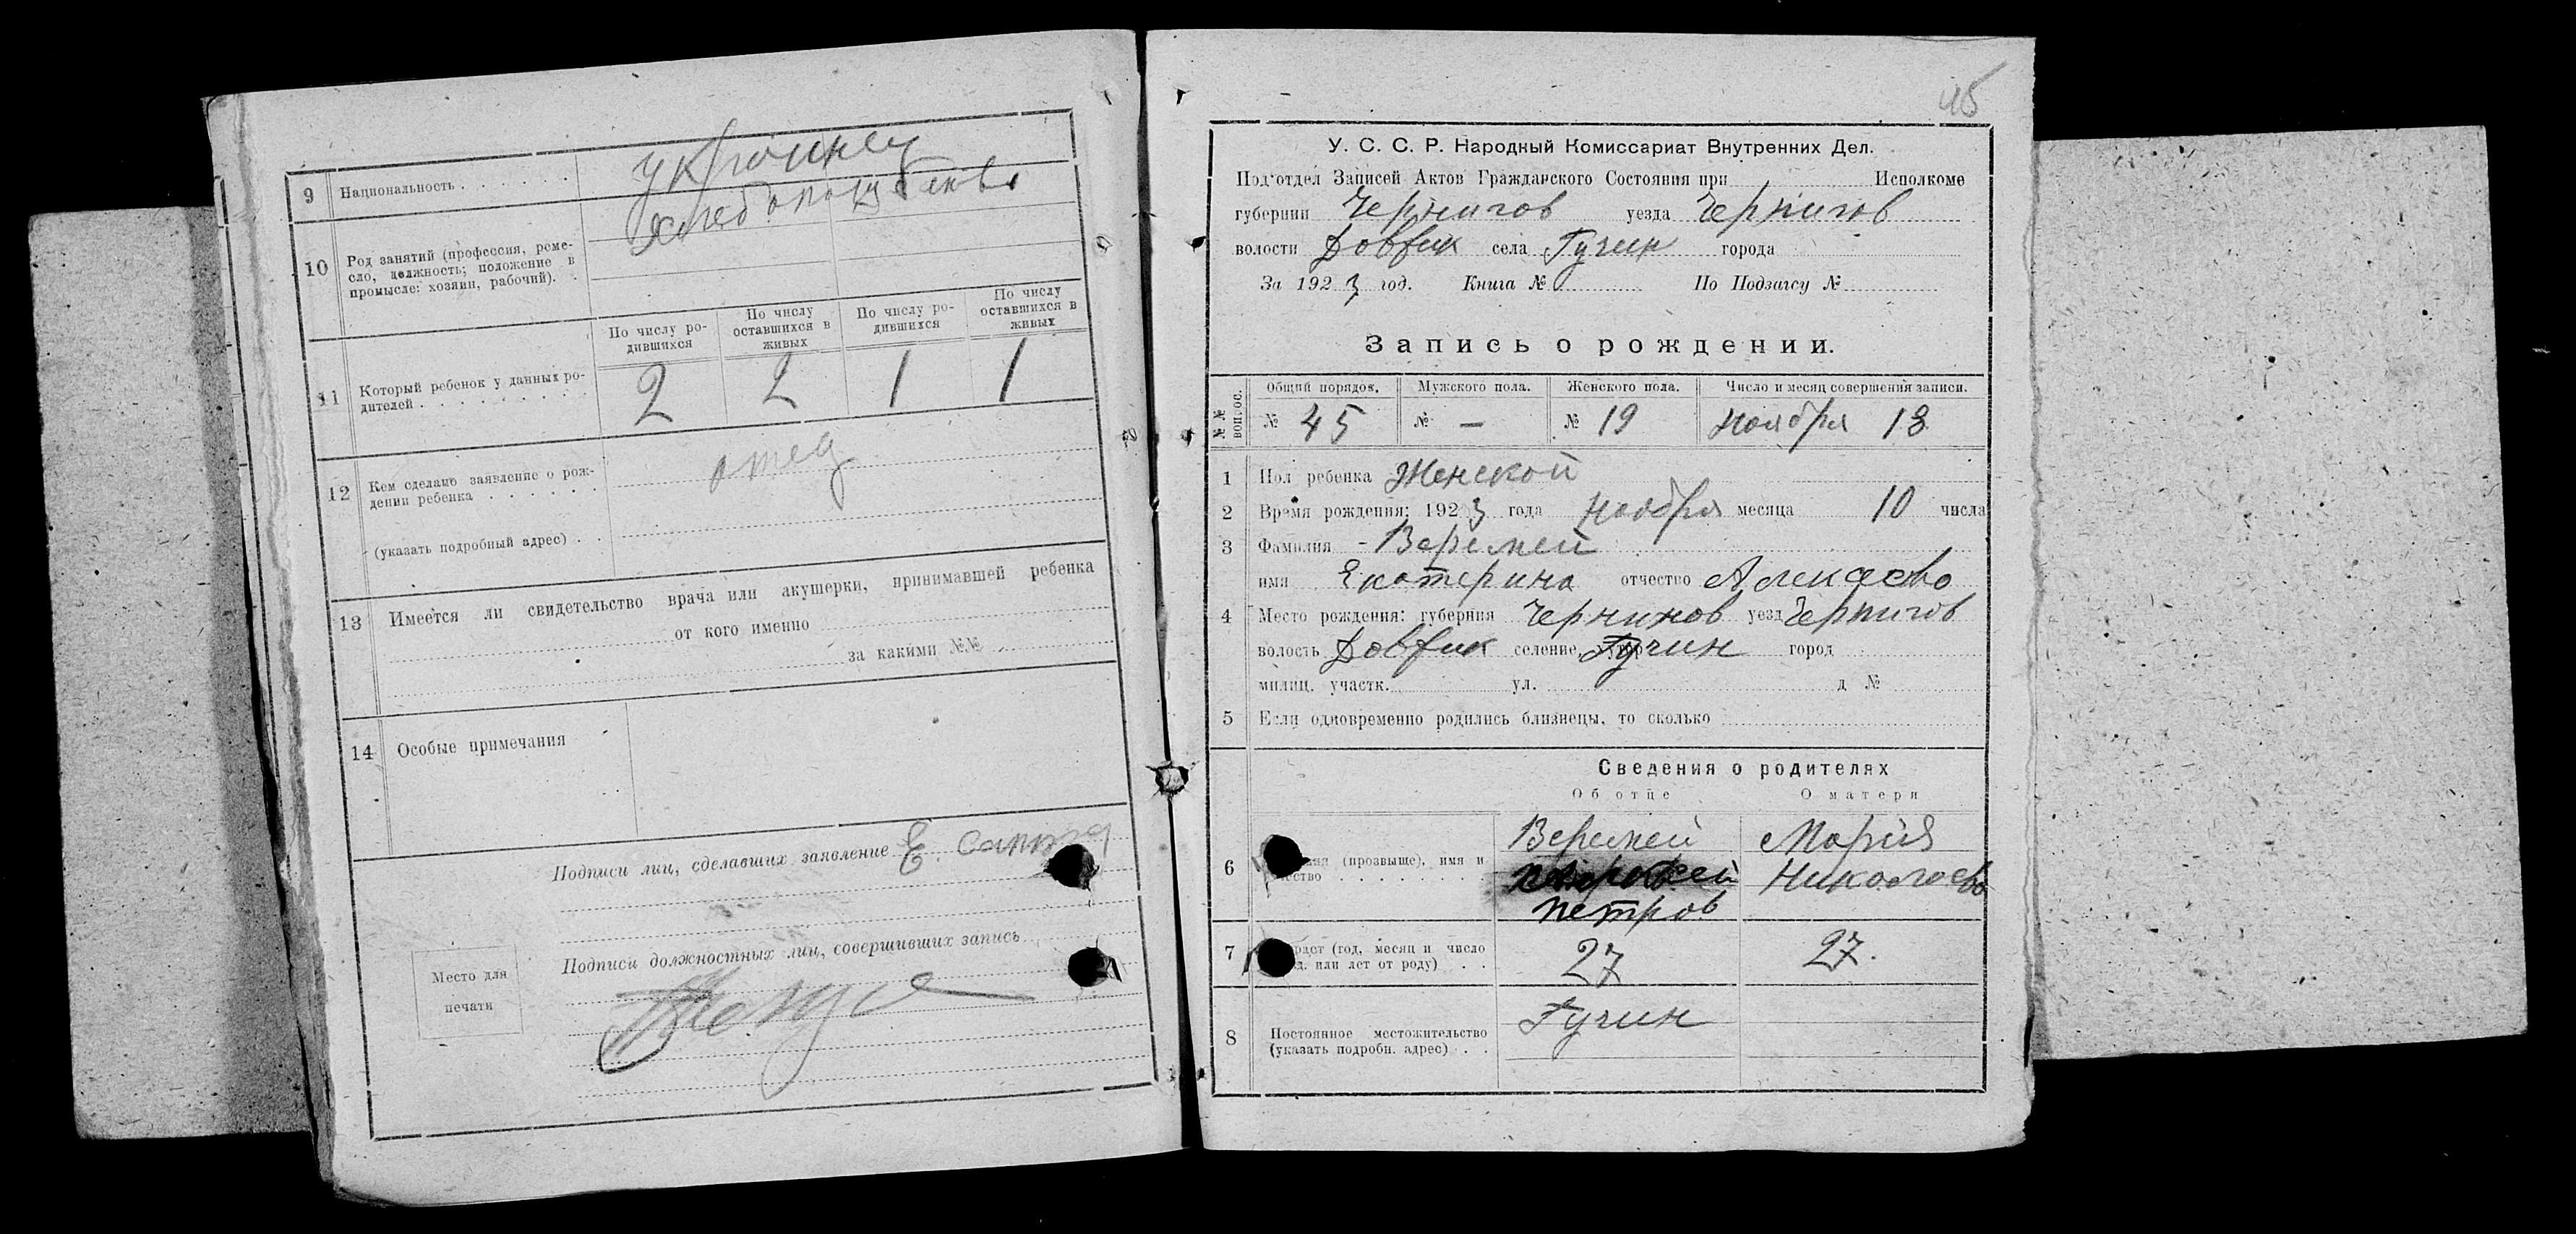 9 Национальность . . . . . . . украинец
хлебопашество
10 Род занятий (профессия, реме-
сло, должность; положение в
промысле: хозяин, рабочий). .
По числу ро-
дившихся
По числу
оставшихся в
живых
По числу ро-
дившихся
По числу
оставшихся в
живых
11 Который ребенок у данных ро-
дителей . . . . . . . . . 2 2 1 1
12 Кем сделано заявление о рож-
дении ребенка . . . . . . отец
(указать подробный адрес) . .
13 Имеется ли свидетельство врача или акушерки, принимавшей ребенка
от кого именно
за какими №№
14 Особые примечания
Подписи лиц, сделавших заявление Е.
Подписи должностных лиц, совершивших запись
Место для
печати
45
У. С. С. Р. Народный Комиссариат Внутренних Дел.
Под'отдел Записей Актов Гражданского Состояния при Исполкоме
губернии Чернигов уезда Чернигов
волости Довжик села Гучин города
За 1923 год. Книга № По Подзагсу №
Запись о рождении.
№№ вопрос.
Общий порядок. Мужского пола. Женского пола. Число и месяц совершения записи.
№ 45 № — № 19 ноября 13
1 Пол ребенка Женской
2 Время рождения: 1923 года ноября месяца 10 числа
3 Фамилия - Веремей
имя Екатерина отчество Алексаево
4 Место рождения: губерния Чернигов уезд Чернигов
волость Довжик селение, Гучин город
милиц. участк. ул. д №
5 Если одновременно родились близнецы, то сколько
Сведения о родителях
Об отце О матери
6 (прозвыще), имя и Веремей Мария
Николаево
Петров
7 (год, месяц и число
или лет от роду) . . 27 27.
8 Постоянное местожительство
(указать подробн. адрес) . . Гучин